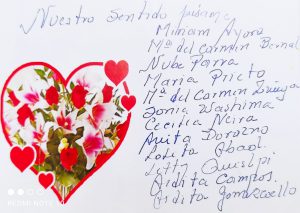 Nuestro Sentido pésame
Miriam
Mª del Carmen Bernal
Nube Parra
María Prieto
Mª del Carmen Zuñiga
Sonia Washima
Cecilia Neira
Anita Donozno
Lolita Abad.
Letty Quispi
Aidita Campos.
Aidita
REDMI NOTE